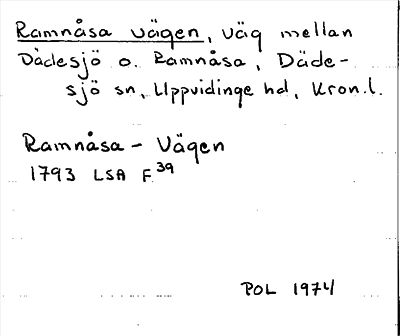 Ramnåsa vägen, väg mellan
Dädesjö o. Ramnåsa, Däde-
sjö sn, Uppvidinge hd, Kron.l.
Ramnåsa - Vägen
1793 LSA F 39
POL 1974